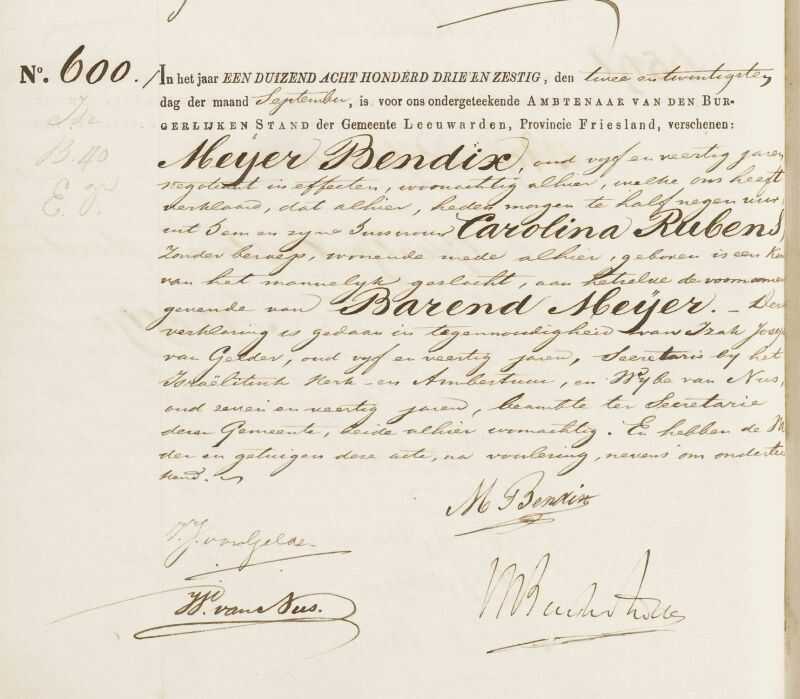 No. 600.
In het jaar EEN DUIZEND ACHT HONDERD DRIE EN ZESTIG, den twee entwintigsten
dag der maand September, is voor ons ondergeteekende AMBTENAAR VAN DEN BUR-
GERLIJKEN STAND der Gemeente Leeuwarden, Provincie Friesland, verschenen:
Meyer Bendix, oud vyf en veertig jaren
negotiant in effecten, woonachtig alhier, welke ons heeft
verklaard, dat alhier, heden morgen te half negen uur
uit hem en zyne huisvrouw Carolina Rubens,
zonder beroep, wonende mede alhier, geboren is een Kin
van het mannelyk geslacht, aan hetwelke de voornamen
gevende van Barend Meÿer. _ Deze
verklaring is gedaan in tegenwoordigheid van Izak Josep
van Gelder, oud vyf en veertig jaren, Secretaris by het
Israëlitisch Kerk- en Armbestuur, en Wybe van Nus,
oud zeven en veertig jaren, beambte ter Secretarie
dezer Gemeente, beide alhier woonachtig. En hebben de
der en getuigen deze acte, na voorlezing, nevens ons onderte
kend.
M Bendix
I. J. van Gelder
W. van Nus.